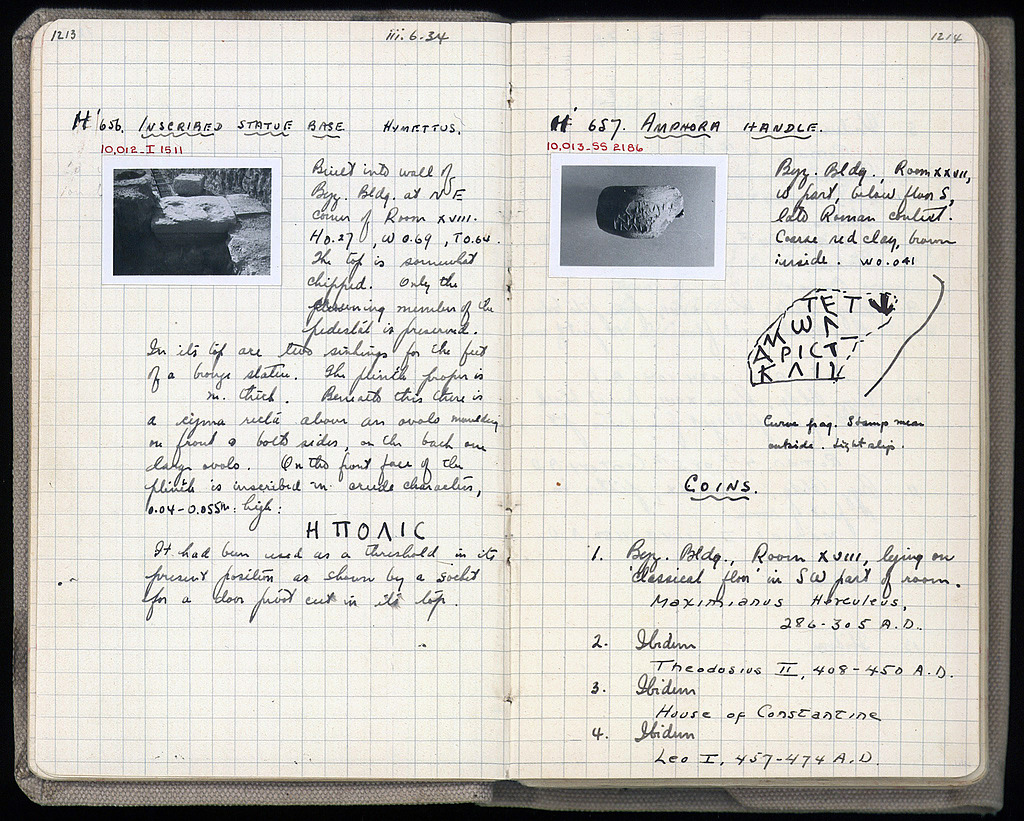 1213
iii.6.34
H' 656. INSCRIBED STATUE BASE HYMETTUS.
10,012_I 1511
Built into wall of
Byz. Bldg. at NE
corner of Room XVIII.
H 0.27, W 0.69, T 0.60.
The top is somewhat
chipped. Only the
crowning member of the
pedestal is preserved.
In its top are two sinkings for the feet
of a bronze statue. The plinth proper is
m. thick. Beneath this there is
a cyma recta above an ovolo moulding
on front & both sides, on the back one
large ovolo. On the front face of the
plinth is inscribed in crude characters,
0.04-0.055m. high:
Η ΠΟΛΙC
It had been used as a threshold in its
present position as shown by a socket
for a door pivot cut in its top.
1214
H' 657. AMPHORA HANDLE.
10,013_SS 2186
Byz. Bldg., Room XXVII,
W part, below floor 5,
late Roman context.
Coarse red clay, brown
inside. W 0.041
ΤΕΤ
ΑΜΩΛ
ΑΡΙCΤ
ΚΛΙ
Curve frag. Stamp near
outside. Light slip.
COINS.
1. Byz. Bldg., Room XVIII, lying on
'classical floor' in SW part of room.
Maximianus Herculeus,
286-305 A.D.
2. Ibidem
Theodosius II, 408-450 A.D.
3. Ibidem
House of Constantine
4. Ibidem
Leo I, 457-474 A.D.